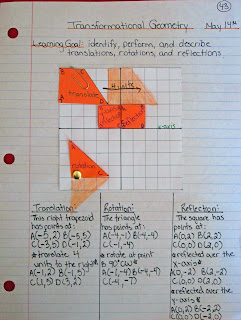 43
Transformational Geometry May 14th
Learning Goal: identify, perform, and describe
translations, rotations, and reflections.
B C
translate
4 units
A D
x-axis
A
rotation
B C
Translation:
This right trapezoid
has points at:
A(-5,2) B(-5,5)
C(-3,5) D(-1,2)
*translate 4
units to the right*
A(-1,2) B(-1,5)
C(1,5) D(3,2)
Rotation:
The triangle
has points at:
A(-4,-1) B(-4,-4)
C(-1,-4)
*rotate at point
B 90° CW*
A(-1,-4) B(-4,-4)
C(-4,-7)
Reflection:
The square has
points at:
A(0,2) B(2,2)
C(0,0) D(2,0)
*reflected over the
x-axis*
A(0,-2) B(2,-2)
C(0,0) D(2,0)
*reflected over the
y-axis*
A(0,2) B(-2,2)
C(0,0) D(-2,0)